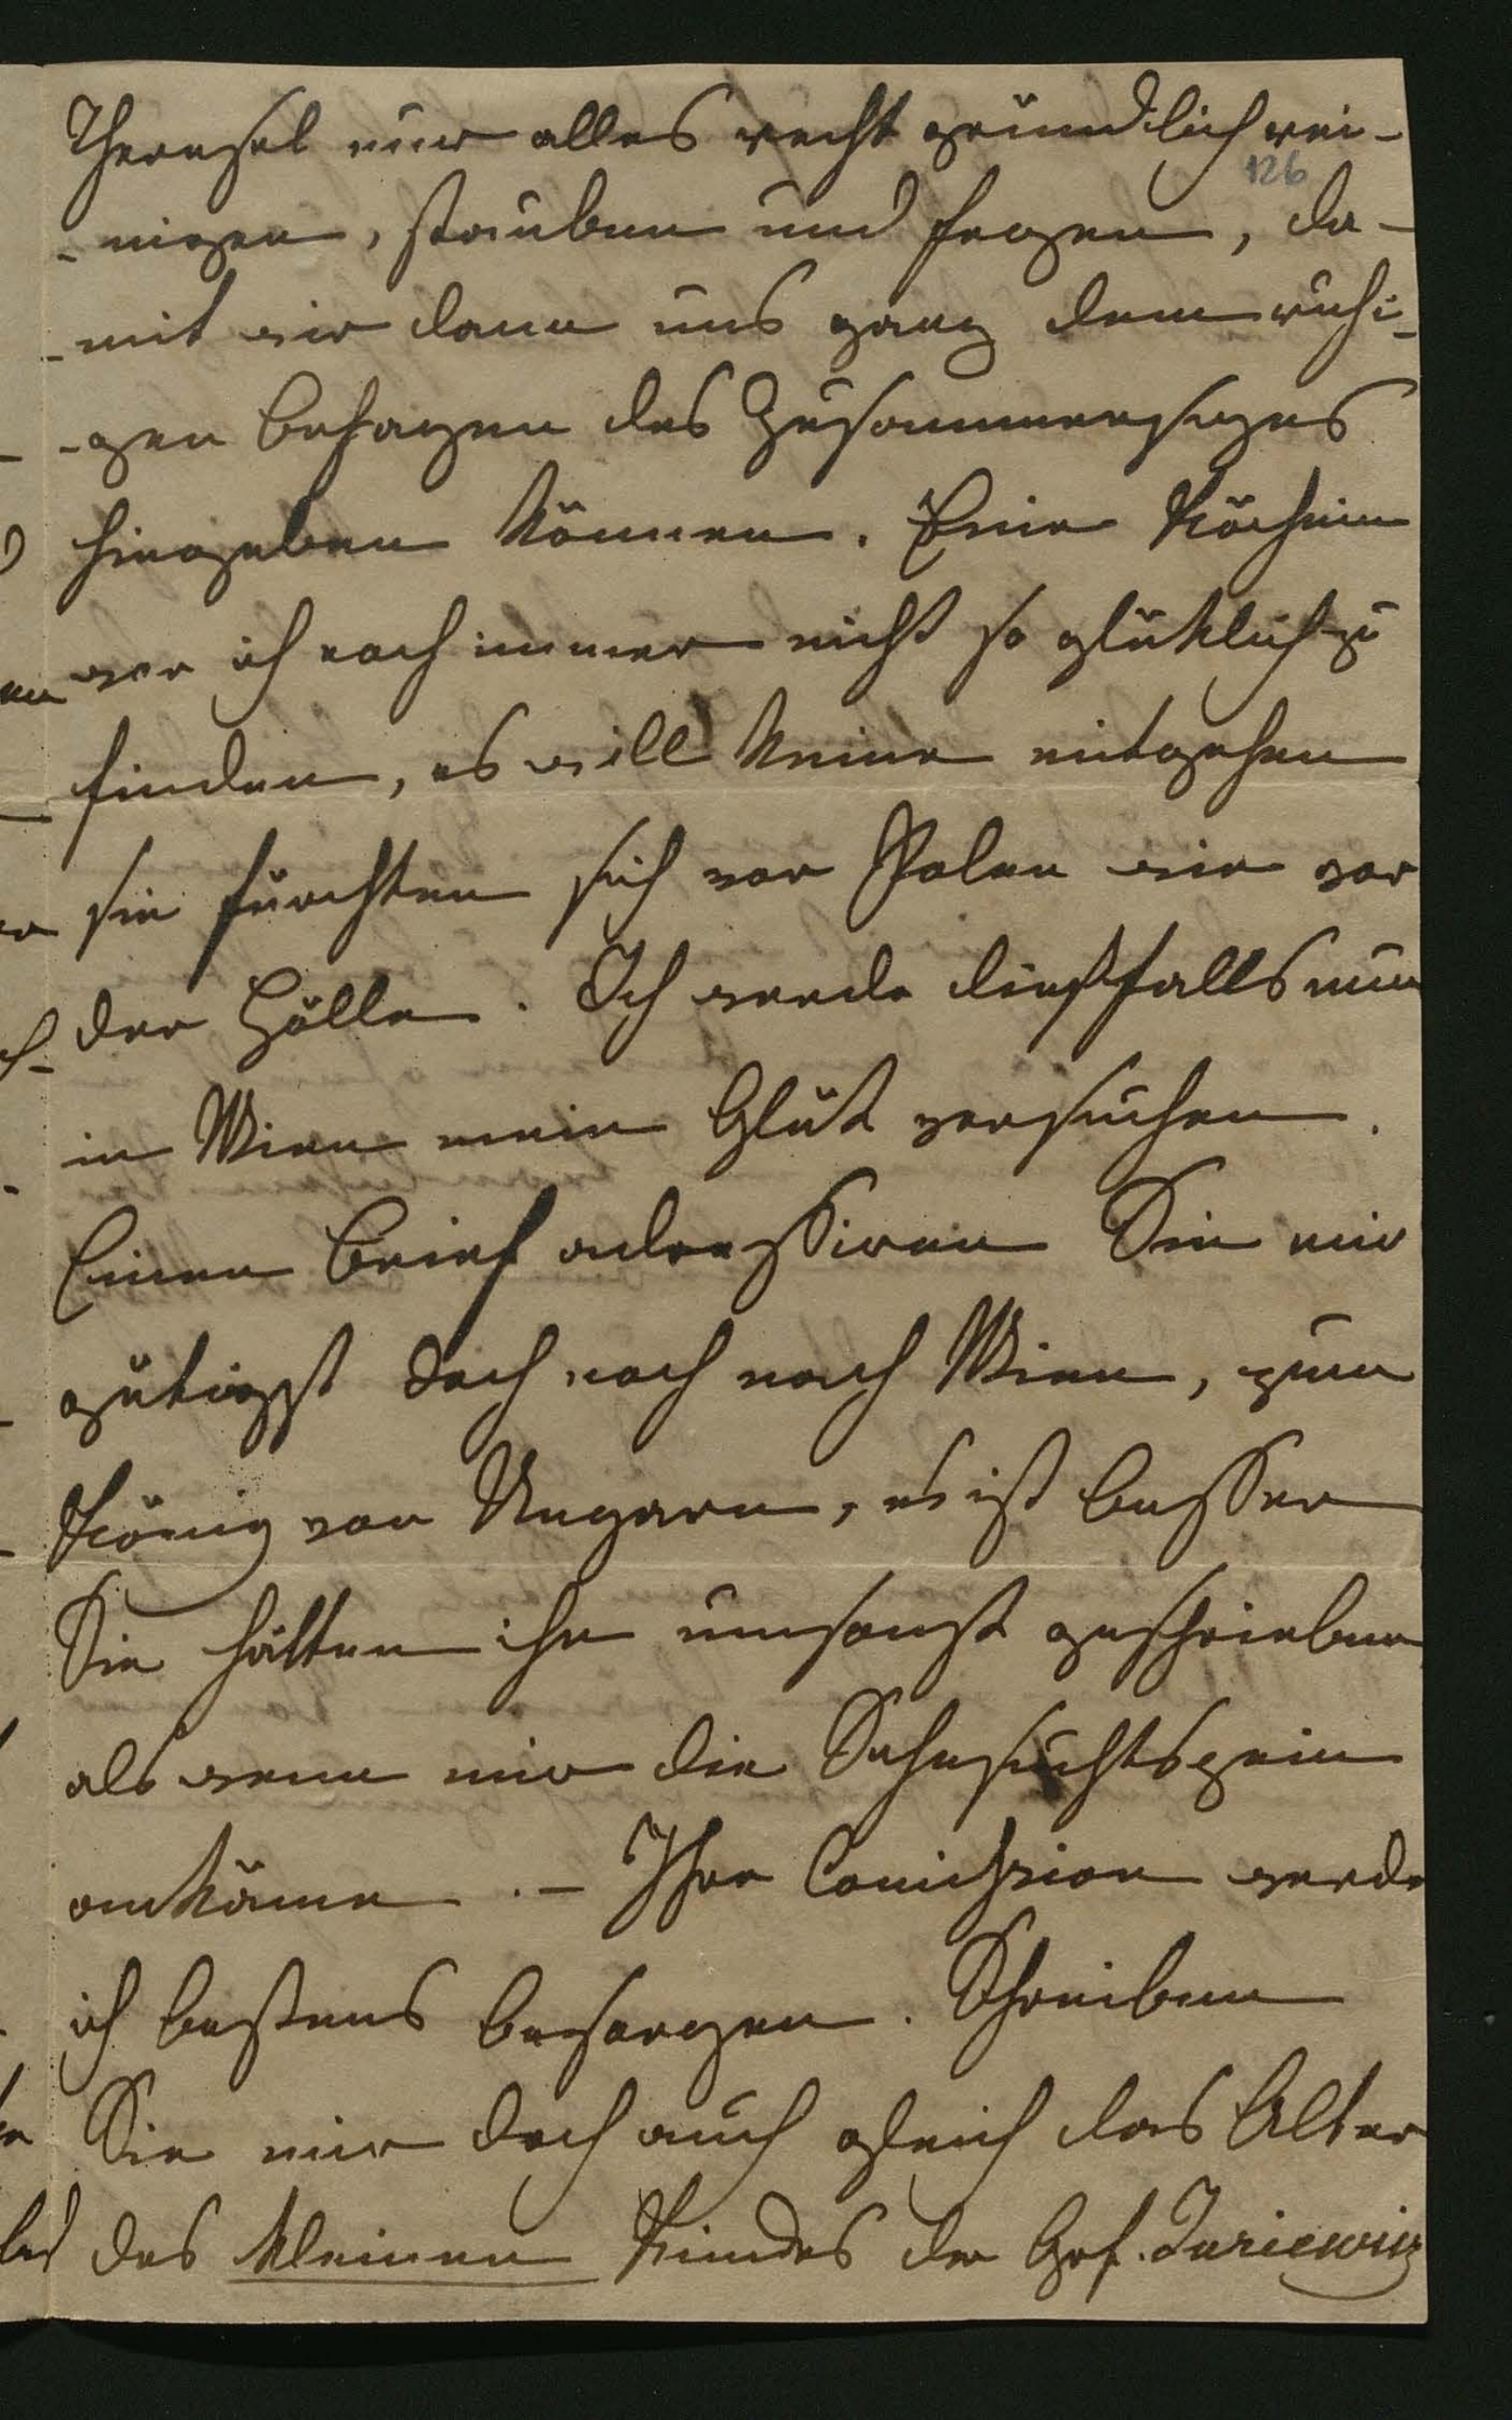 Theresel nur alles recht gründlich rei-
126
-nigen, stauben und fegen, da-
-mit wir dann uns ganz dem ruhi-
-gen Behagen des Zusammenseyns
hingeben können. Eine Köchinn
war ich noch immer nicht so glüklich zu
finden, es will keine mitgehen
sie fürchten sich vor Polen wie vor
der Hölle. Ich werde diesfalls nun
in Wien mein Glük versuchen.
Einen Brief adressiren Sie mir
gütigst doch noch nach Wien, zum
König von Ungarn, es ist besser
Sie hätten ihn umsonst geschrieben
als wenn mir die Sehnsuchtspein
ankäme. – Ihre Comission werde
ich bestens besorgen. Schreiben
Sie mir doch auch gleich das Alter
des kleinen Kindes der Grf. Juriewicz